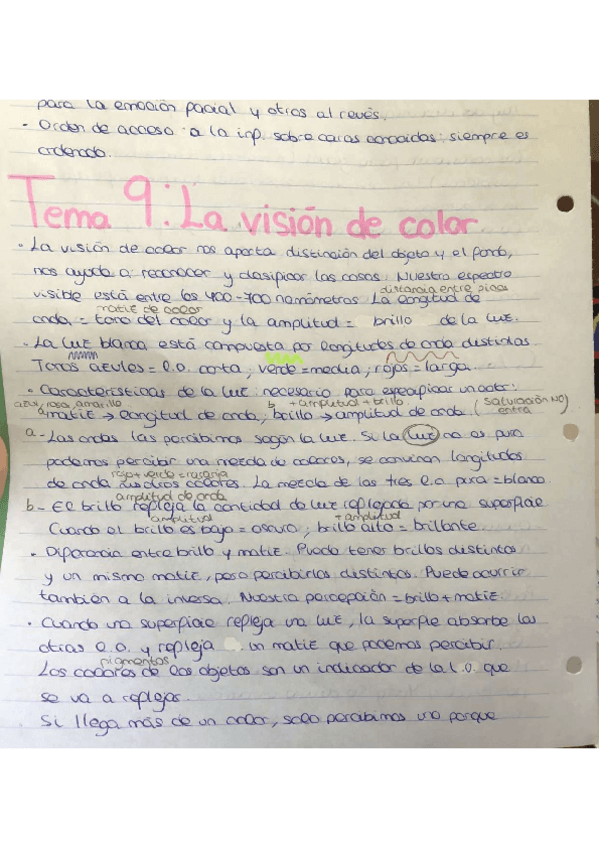 para la emoción facial y otros al revés.
· Orden de acceso a la inf. sobre caras conocidas: siempre es
ordenado.
Tema 9: La visión de color
· La visión de color nos aporta distinción del objeto y el fondo,
nos ayuda a reconocer y clasificar las cosas. Nuestro espectro
distancia entre picos
visible está entre los 400-700 nanómetros. La longitud de
matiz de color
onda = tono del color y la amplitud = brillo de la luz.
· La luz blanca está compuesta por longitudes de onda distintas.
Tonos azules = l.o. corta, verde = media, rojos = larga.
· Características de la luz necesario para especificar un color:
azul, rosa, amarillo
b + amplitud + brillo
a matiz → longitud de onda; brillo → amplitud de onda. (saturación NO entra)
a- Las ondas las percibimos según la luz. Si la luz no es pura
podemos percibir una mezcla de colores, se convinan longitudes
rojo + verde =
de onda otros colores. La mezcla de las tres l.o pura = blanco.
amplitud de onda
b- El brillo refleja la cantidad de luz reflejada por una superficie
amplitud + amplitud
Cuando el brillo es bajo = oscuro; brillo alto = brillante.
· Diferencia entre brillo y matiz. Puedo tener brillos distintos
y un mismo matiz, pero percibirlos distintos. Puede ocurrir
también a la inversa. Nuestra percepción = brillo + matiz.
· Cuando una superficie refleja una luz, la superfie absorbe las
otras l.o. y refleja un matiz que podemos percibir.
pigmentos
Los colores de los objetos son un indicador de la l.o. que
se va a reflejar.
Si llega más de un color, solo percibimos uno porque